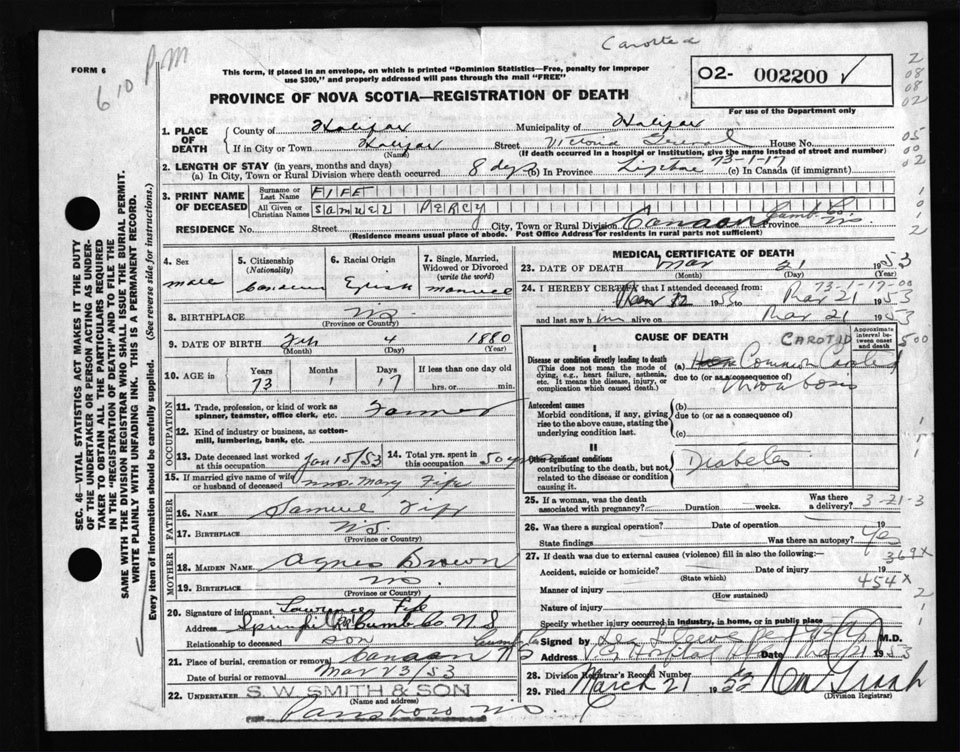 Carotid
FORM 6
6 10 PM
This form, if placed in an envelope, on which is printed "Dominion Statistics—Free, penalty for improper
use $300," and properly addressed will pass through the mail "FREE"
O2- 002200 √
For use of the Department only
PROVINCE OF NOVA SCOTIA—REGISTRATION OF DEATH
1. PLACE OF DEATH
County of Halifax Municipality of Halifax
If in City or Town Halifax (Name) Street Victoria General House No.
(If death occurred in a hospital or institution, give the name instead of street and number)
2. LENGTH OF STAY (in years, months and days) 73-1-17
(a) In City, Town or Rural Division where death occurred 8 dys (b) In Province Lifetime (c) In Canada (if immigrant)
3. PRINT NAME OF DECEASED
Surname or Last Name FIFE
All Given or Christian Names SAMUEL PERCY
RESIDENCE No. Street City, Town or Rural Division Canaan Cumb. Co. Province N.S.
(Residence means usual place of abode. Post Office Address for residents in rural parts not sufficient)
4. Sex male
5. Citizenship (Nationality) Canadian
6. Racial Origin English
7. Single, Married, Widowed or Divorced (write the word) married
8. BIRTHPLACE N.S. (Province or Country)
9. DATE OF BIRTH Feb (Month) 4 (Day) 1880 (Year)
10. AGE Years 73 Months 1 Days 17 If less than one day hrs. or min.
OCCUPATION
11. Trade, profession, or kind of work as spinner, teamster, office clerk, etc. Farmer
12. Kind of industry or business, as cotton-mill, lumbering, bank, etc.
13. Date deceased last worked at this occupation Jan 15/53
14. Total yrs. spent in this occupation 50 yrs
15. If married give name of wife or husband of deceased Mrs. Mary Fife
FATHER
16. NAME Samuel Fife
17. BIRTHPLACE N.S. (Province or Country)
MOTHER
18. MAIDEN NAME Agnes Brown
19. BIRTHPLACE N.S. (Province or Country)
20. Signature of informant Lawrence Fife
Address Cumb Co. N.S
Relationship to deceased son
21. Place of burial, cremation or removal Canaan Cumb Co NS
Date of burial or removal Mar 23/53
22. UNDERTAKER S. W. SMITH & SON
(Name and address)
Parrsboro N.S.
MEDICAL CERTIFICATE OF DEATH
23. DATE OF DEATH Mar (Month) 21 (Day) 1953
24. I HEREBY CERTIFY that I attended deceased from: 73-1-17-00
Mar 12 1953 to Mar 21 1953
and last saw him alive on Mar 21 1953
CAUSE OF DEATH
Approximate interval between onset and death
CAROTID 500
I
Disease or condition directly leading to death
(This does not mean the mode of dying, e.g., heart failure, asthenia, etc. It means the disease, injury, or complication which caused death.)
(a) Common Carotid
due to (or as a consequence of) thrombosis
Antecedent causes
Morbid conditions, if any, giving rise to the above cause, stating the underlying condition last.
(b)
due to (or as a consequence of)
(c)
II
Other significant conditions contributing to the death, but not related to the disease or condition causing it.
Diabetes
25. If a woman, was the death associated with pregnancy? Duration weeks. Was there a delivery? 3-21-3
26. Was there a surgical operation? Date of operation 19
State findings Was there an autopsy? yes
27. If death was due to external causes (violence) fill in also the following:— 369X
Accident, suicide or homicide? (State which) Date of injury 19
Manner of injury (How sustained) 454X
Nature of injury
Specify whether injury occurred in industry, in home, or in public place
Signed by M.D.
Address V.G. Hospital Date Mar 21 1953
28. Division Registrar's Record Number
29. Filed March 21 1953
(Division Registrar)
SEC. 46—VITAL STATISTICS ACT MAKES IT THE DUTY
OF THE UNDERTAKER OR PERSON ACTING AS UNDER-
TAKER TO OBTAIN ALL THE PARTICULARS REQUIRED
IN THE "REGISTRATION OF DEATH" AND TO FILE THE
SAME WITH THE DIVISION REGISTRAR WHO SHALL ISSUE THE BURIAL PERMIT.
WRITE PLAINLY WITH UNFADING INK. THIS IS A PERMANENT RECORD.
Every item of information should be carefully supplied. (See reverse side for instructions.)